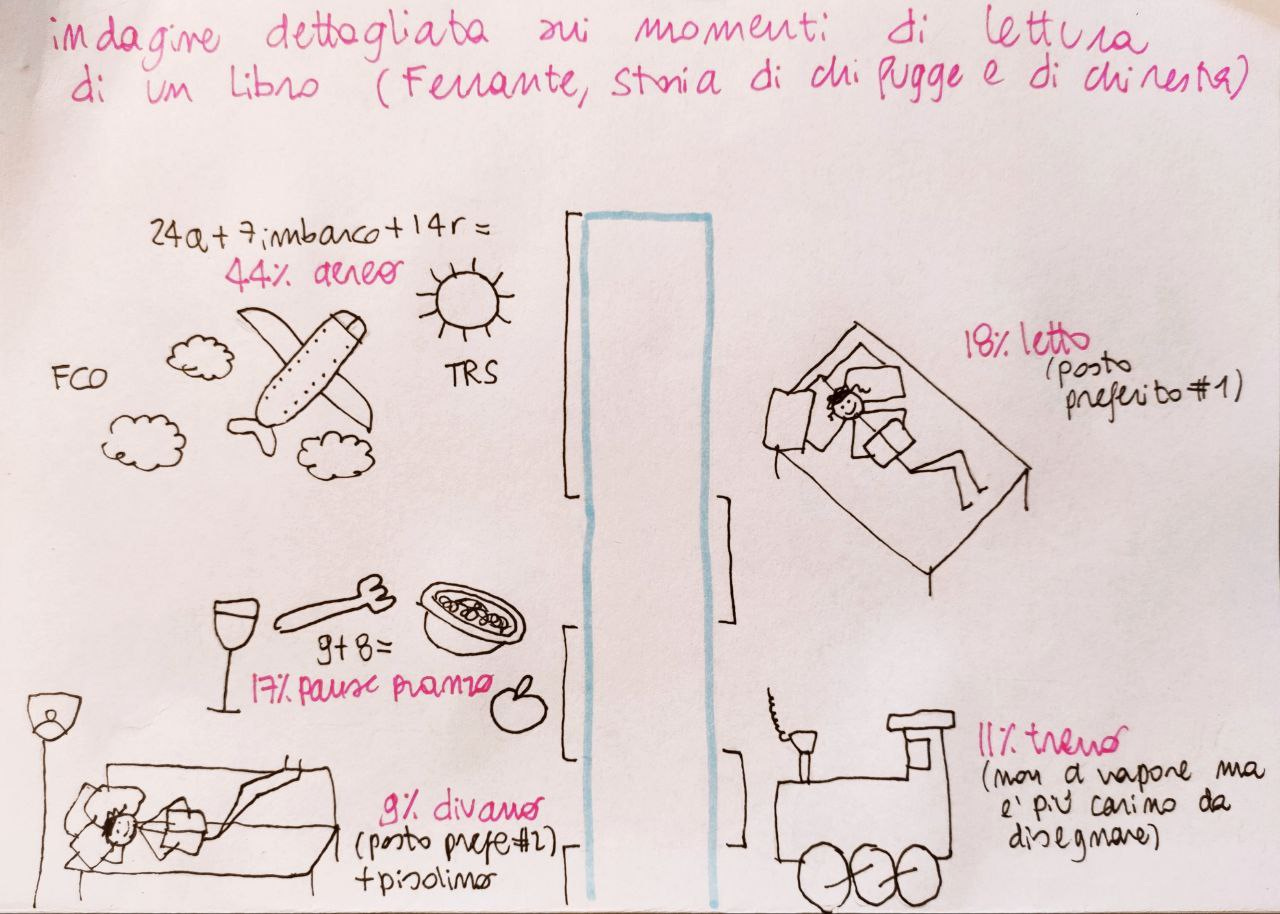 indagine dettagliata sui momenti di lettura
di un libro (Ferrante, storia di chi fugge e di chi resta)
24a + 7 imbarco + 14r =
44% aereo
FCO
TRS
18% letto
(posto
preferito #1)
9+8=
17% pause pranzo
9% divano
(posto prefe #2)
+ pisolino
11% treno
(non a vapore ma
è più carino da
disegnare)